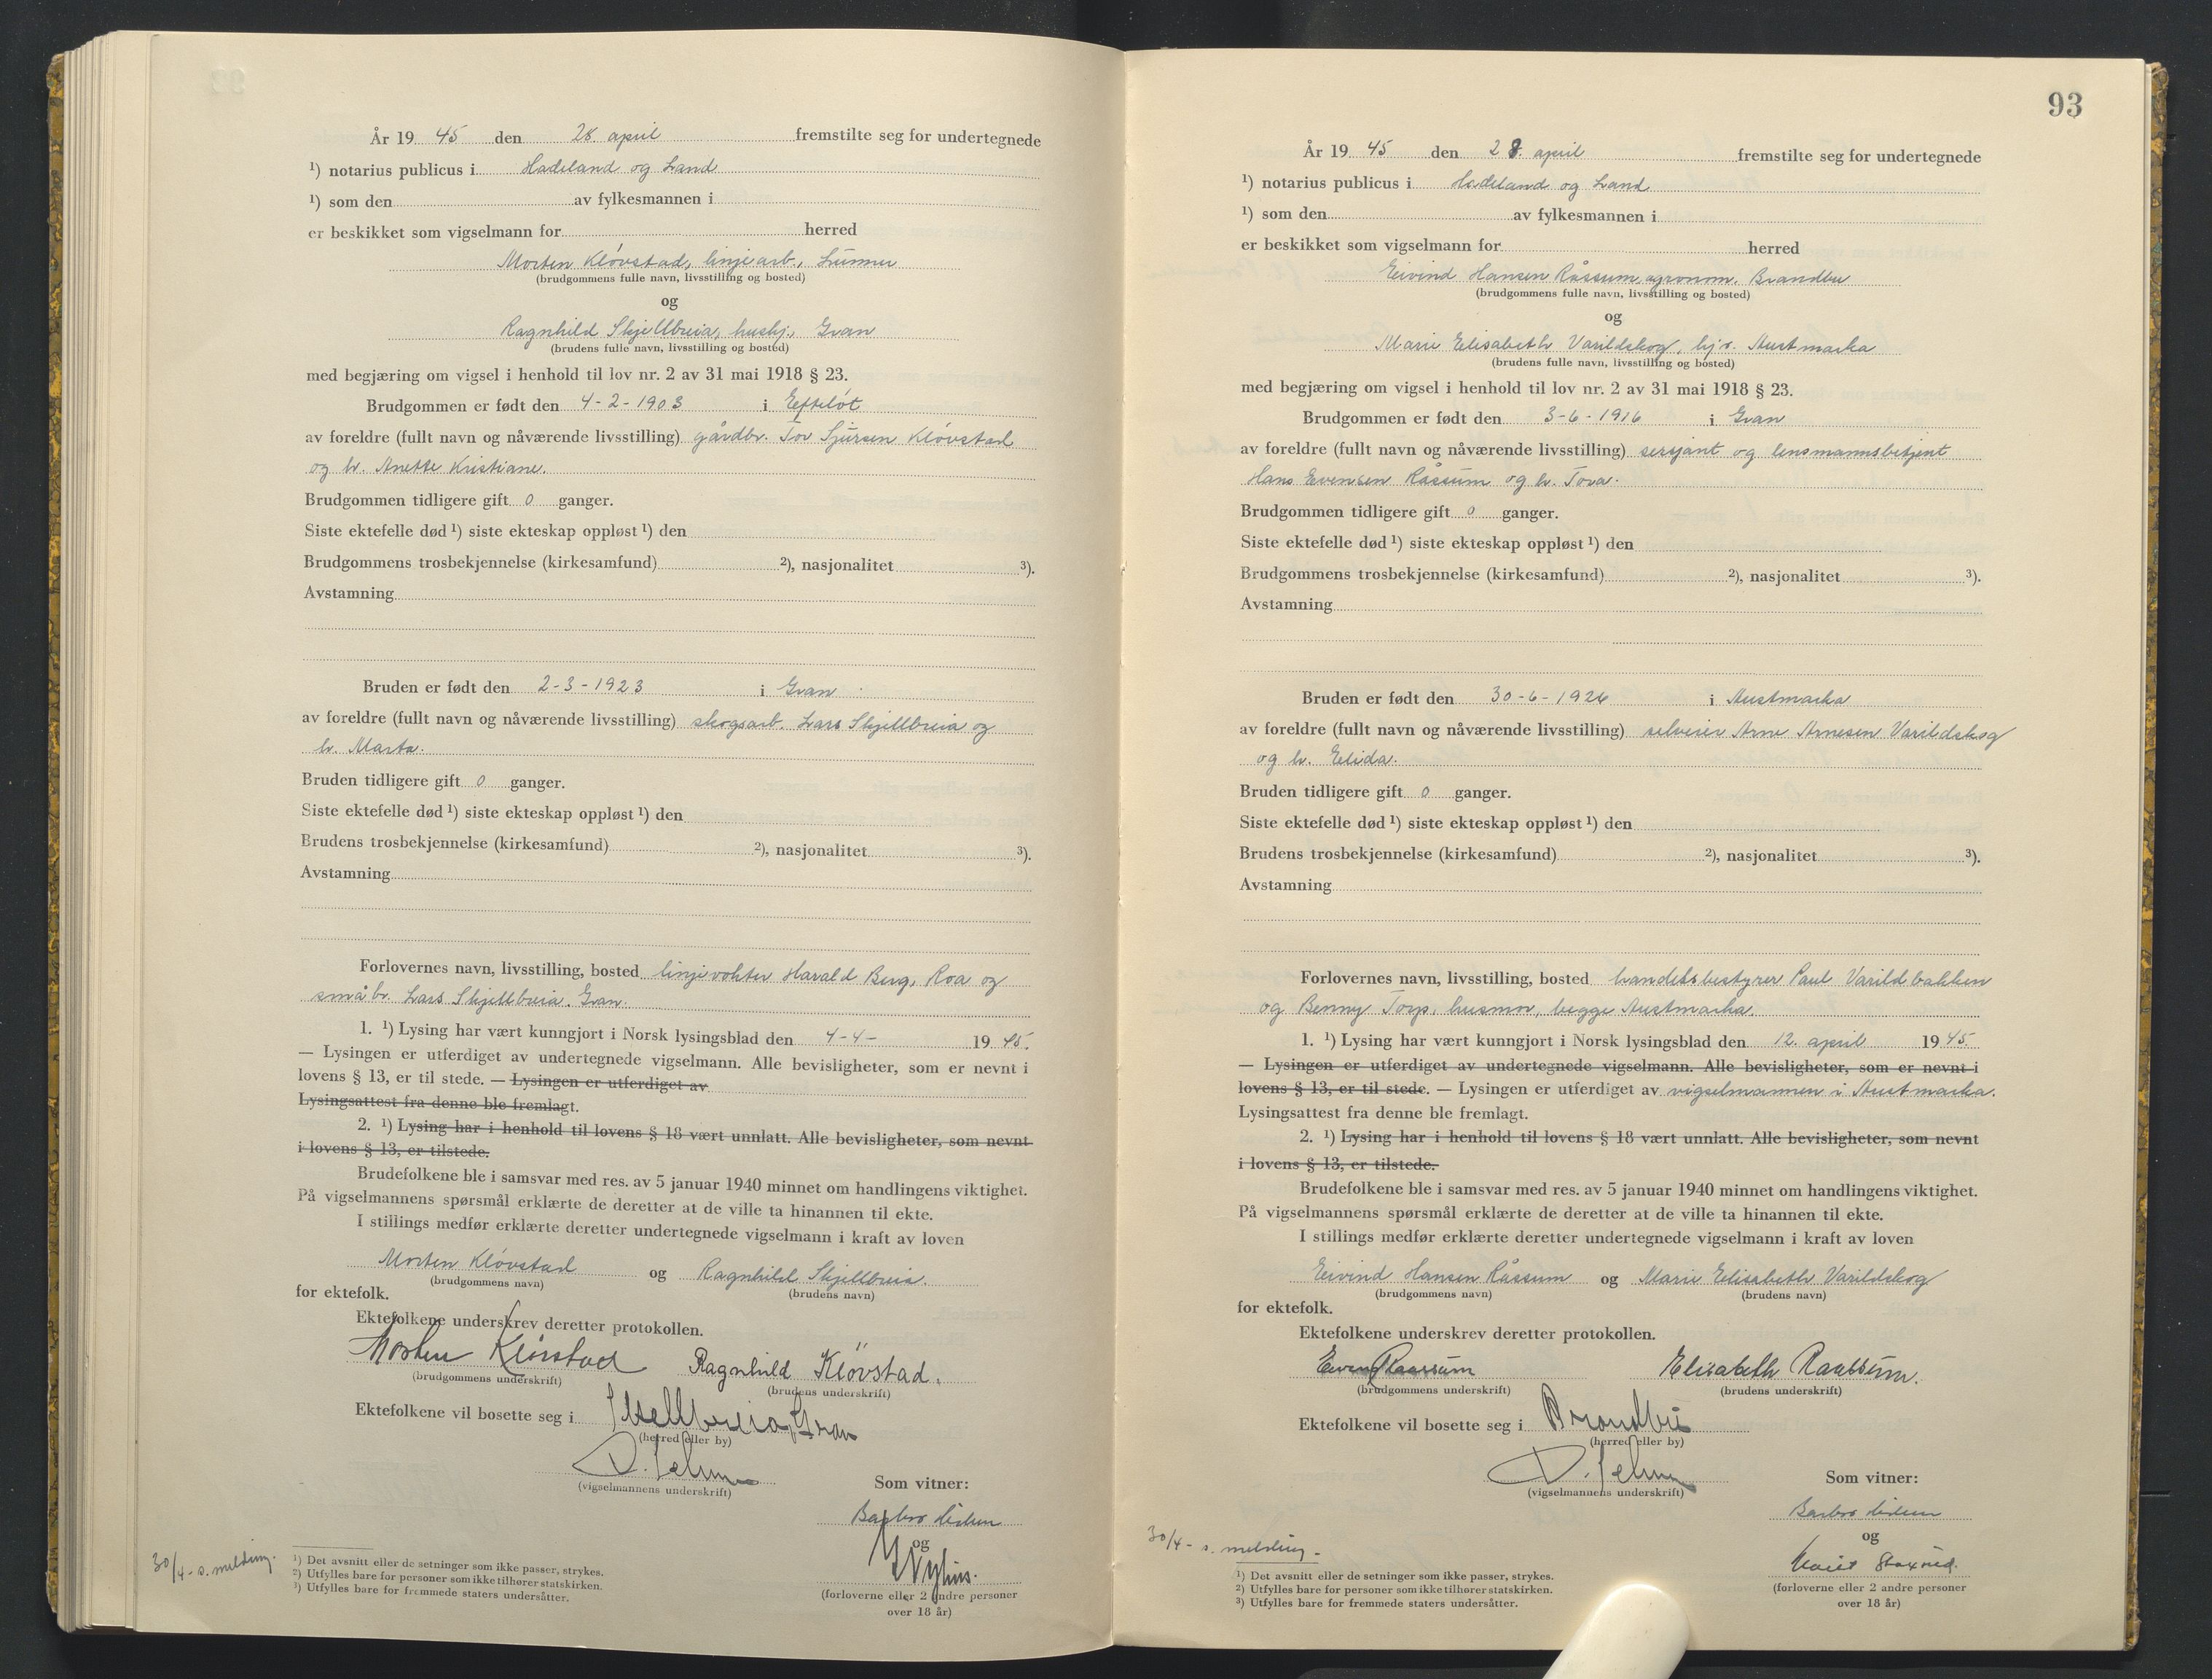 År 19 45 den 28 april fremstilte seg for undertegnede
¹) notarius publicus i Hadeland og Land
¹) som den av fylkesmannen i
er beskikket som vigselmann for herred
Morten Kløvstad, linjearb., Lunner
(brudgommens fulle navn, livsstilling og bosted)
og
Ragnhild Skjellbreia, hushj., Gran
(brudens fulle navn, livsstilling og bosted)
med begjæring om vigsel i henhold til lov nr. 2 av 31 mai 1918 § 23.
Brudgommen er født den 4-2-1903 i Efteløt
av foreldre (fullt navn og nåværende livsstilling) gårdbr. Tov Sjursen Kløvstad
og h. Anette Kristiane.
Brudgommen tidligere gift 0 ganger.
Siste ektefelle død ¹) siste ekteskap oppløst ¹) den
Brudgommens trosbekjennelse (kirkesamfund) ²), nasjonalitet ³).
Avstamning
Bruden er født den 2-3-1923 i Gran
av foreldre (fullt navn og nåværende livsstilling) skogsarb. Lars Skjellbreia og
h. Marta.
Bruden tidligere gift 0 ganger.
Siste ektefelle død ¹) siste ekteskap oppløst ¹) den
Brudens trosbekjennelse (kirkesamfund) ²), nasjonalitet ³).
Avstamning
Forlovernes navn, livsstilling, bosted linjevokter Harald Berg, Roa og
småbr. Lars Skjellbreia, Gran.
1. ¹) Lysing har vært kunngjort i Norsk lysingsblad den 4-4- 19 45.
— Lysingen er utferdiget av undertegnede vigselmann. Alle bevisligheter, som er nevnt i
lovens § 13, er til stede. — Lysingen er utferdiget av
Lysingsattest fra denne ble fremlagt.
2. ¹) Lysing har i henhold til lovens § 18 vært unnlatt. Alle bevisligheter, som nevnt
i lovens § 13, er tilstede.
Brudefolkene ble i samsvar med res. av 5 januar 1940 minnet om handlingens viktighet.
På vigselmannens spørsmål erklærte de deretter at de ville ta hinannen til ekte.
I stillings medfør erklærte deretter undertegnede vigselmann i kraft av loven
Morten Kløvstad og Ragnhild Skjellbreia.
(brudgommens navn) (brudens navn)
for ektefolk.
Ektefolkene underskrev deretter protokollen.
Morten Kløvstad Ragnhild Kløvstad.
(brudgommens underskrift) (brudens underskrift)
Ektefolkene vil bosette seg i Skjellbreia, Gran
(herred eller by)
(vigselmannens underskrift)
Som vitner:
Barbro
og
(forloverne eller 2 andre personer
over 18 år)
30/4 - s. melding.
¹) Det avsnitt eller de setninger som ikke passer, strykes.
²) Utfylles bare for personer som ikke tilhører statskirken.
³) Utfylles bare for fremmede staters undersåtter.
93
År 19 45 den 28. april fremstilte seg for undertegnede
¹) notarius publicus i Hadeland og Land
¹) som den av fylkesmannen i
er beskikket som vigselmann for herred
Eivind Hansen Råssum, agronom, Brandbu
(brudgommens fulle navn, livsstilling og bosted)
og
Marie Elisabeth Varildskog, hj.v. Austmarka
(brudens fulle navn, livsstilling og bosted)
med begjæring om vigsel i henhold til lov nr. 2 av 31 mai 1918 § 23.
Brudgommen er født den 3-6-1916 i Gran
av foreldre (fullt navn og nåværende livsstilling) sersjant og lensmannsbetjent
Hans Evensen Råssum og h. Tova.
Brudgommen tidligere gift 0 ganger.
Siste ektefelle død ¹) siste ekteskap oppløst ¹) den
Brudgommens trosbekjennelse (kirkesamfund) ²), nasjonalitet ³).
Avstamning
Bruden er født den 30-6-1926 i Austmarka
av foreldre (fullt navn og nåværende livsstilling) selveier Arne Arnesen Varildskog
og h. Elida.
Bruden tidligere gift 0 ganger.
Siste ektefelle død ¹) siste ekteskap oppløst ¹) den
Brudens trosbekjennelse (kirkesamfund) ²), nasjonalitet ³).
Avstamning
Forlovernes navn, livsstilling, bosted handelsbestyrer Paul Varildbakken
og Benny Torp, husmor, begge Austmarka.
1. ¹) Lysing har vært kunngjort i Norsk lysingsblad den 12. april 19 45.
— Lysingen er utferdiget av undertegnede vigselmann. Alle bevisligheter, som er nevnt i
lovens § 13, er til stede. — Lysingen er utferdiget av vigselmannen i Austmarka.
Lysingsattest fra denne ble fremlagt.
2. ¹) Lysing har i henhold til lovens § 18 vært unnlatt. Alle bevisligheter, som nevnt
i lovens § 13, er tilstede.
Brudefolkene ble i samsvar med res. av 5 januar 1940 minnet om handlingens viktighet.
På vigselmannens spørsmål erklærte de deretter at de ville ta hinannen til ekte.
I stillings medfør erklærte deretter undertegnede vigselmann i kraft av loven
Eivind Hansen Råssum og Marie Elisabeth Varildskog
(brudgommens navn) (brudens navn)
for ektefolk.
Ektefolkene underskrev deretter protokollen.
Eivind Raassum Elisabeth Raassum.
(brudgommens underskrift) (brudens underskrift)
Ektefolkene vil bosette seg i Brandbu
(herred eller by)
(vigselmannens underskrift)
Som vitner:
Barbro
og
(forloverne eller 2 andre personer
over 18 år)
30/4 - s. melding -
¹) Det avsnitt eller de setninger som ikke passer, strykes.
²) Utfylles bare for personer som ikke tilhører statskirken.
³) Utfylles bare for fremmede staters undersåtter.